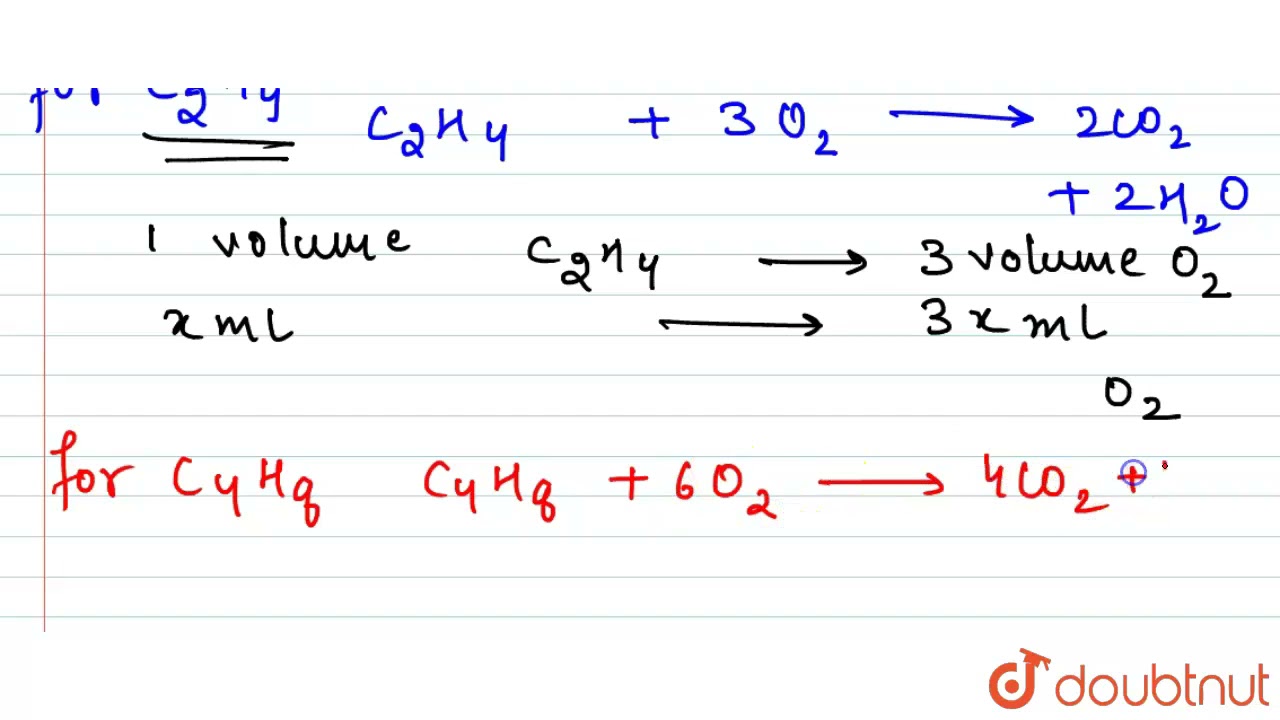 for C2H4 C2H4 + 3 O2 → 2CO2
+ 2H2O
1 volume C2H4 → 3 volume O2
x mL → 3 x mL
O2
for C4H8 C4H8 + 6O2 → 4CO2 +
doubtnut